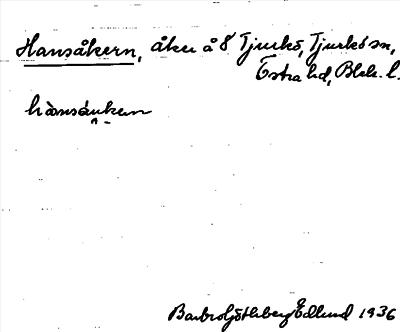 Hansåkern, åker å 8 Tjurkö, Tjurkö sn,
Östra hd, Blek. l.
hànsåukern
Barbro Götlberg Edlund 1936